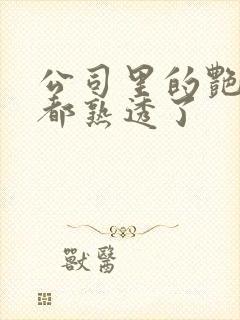 公司里的艷
都熟透了
獸醫